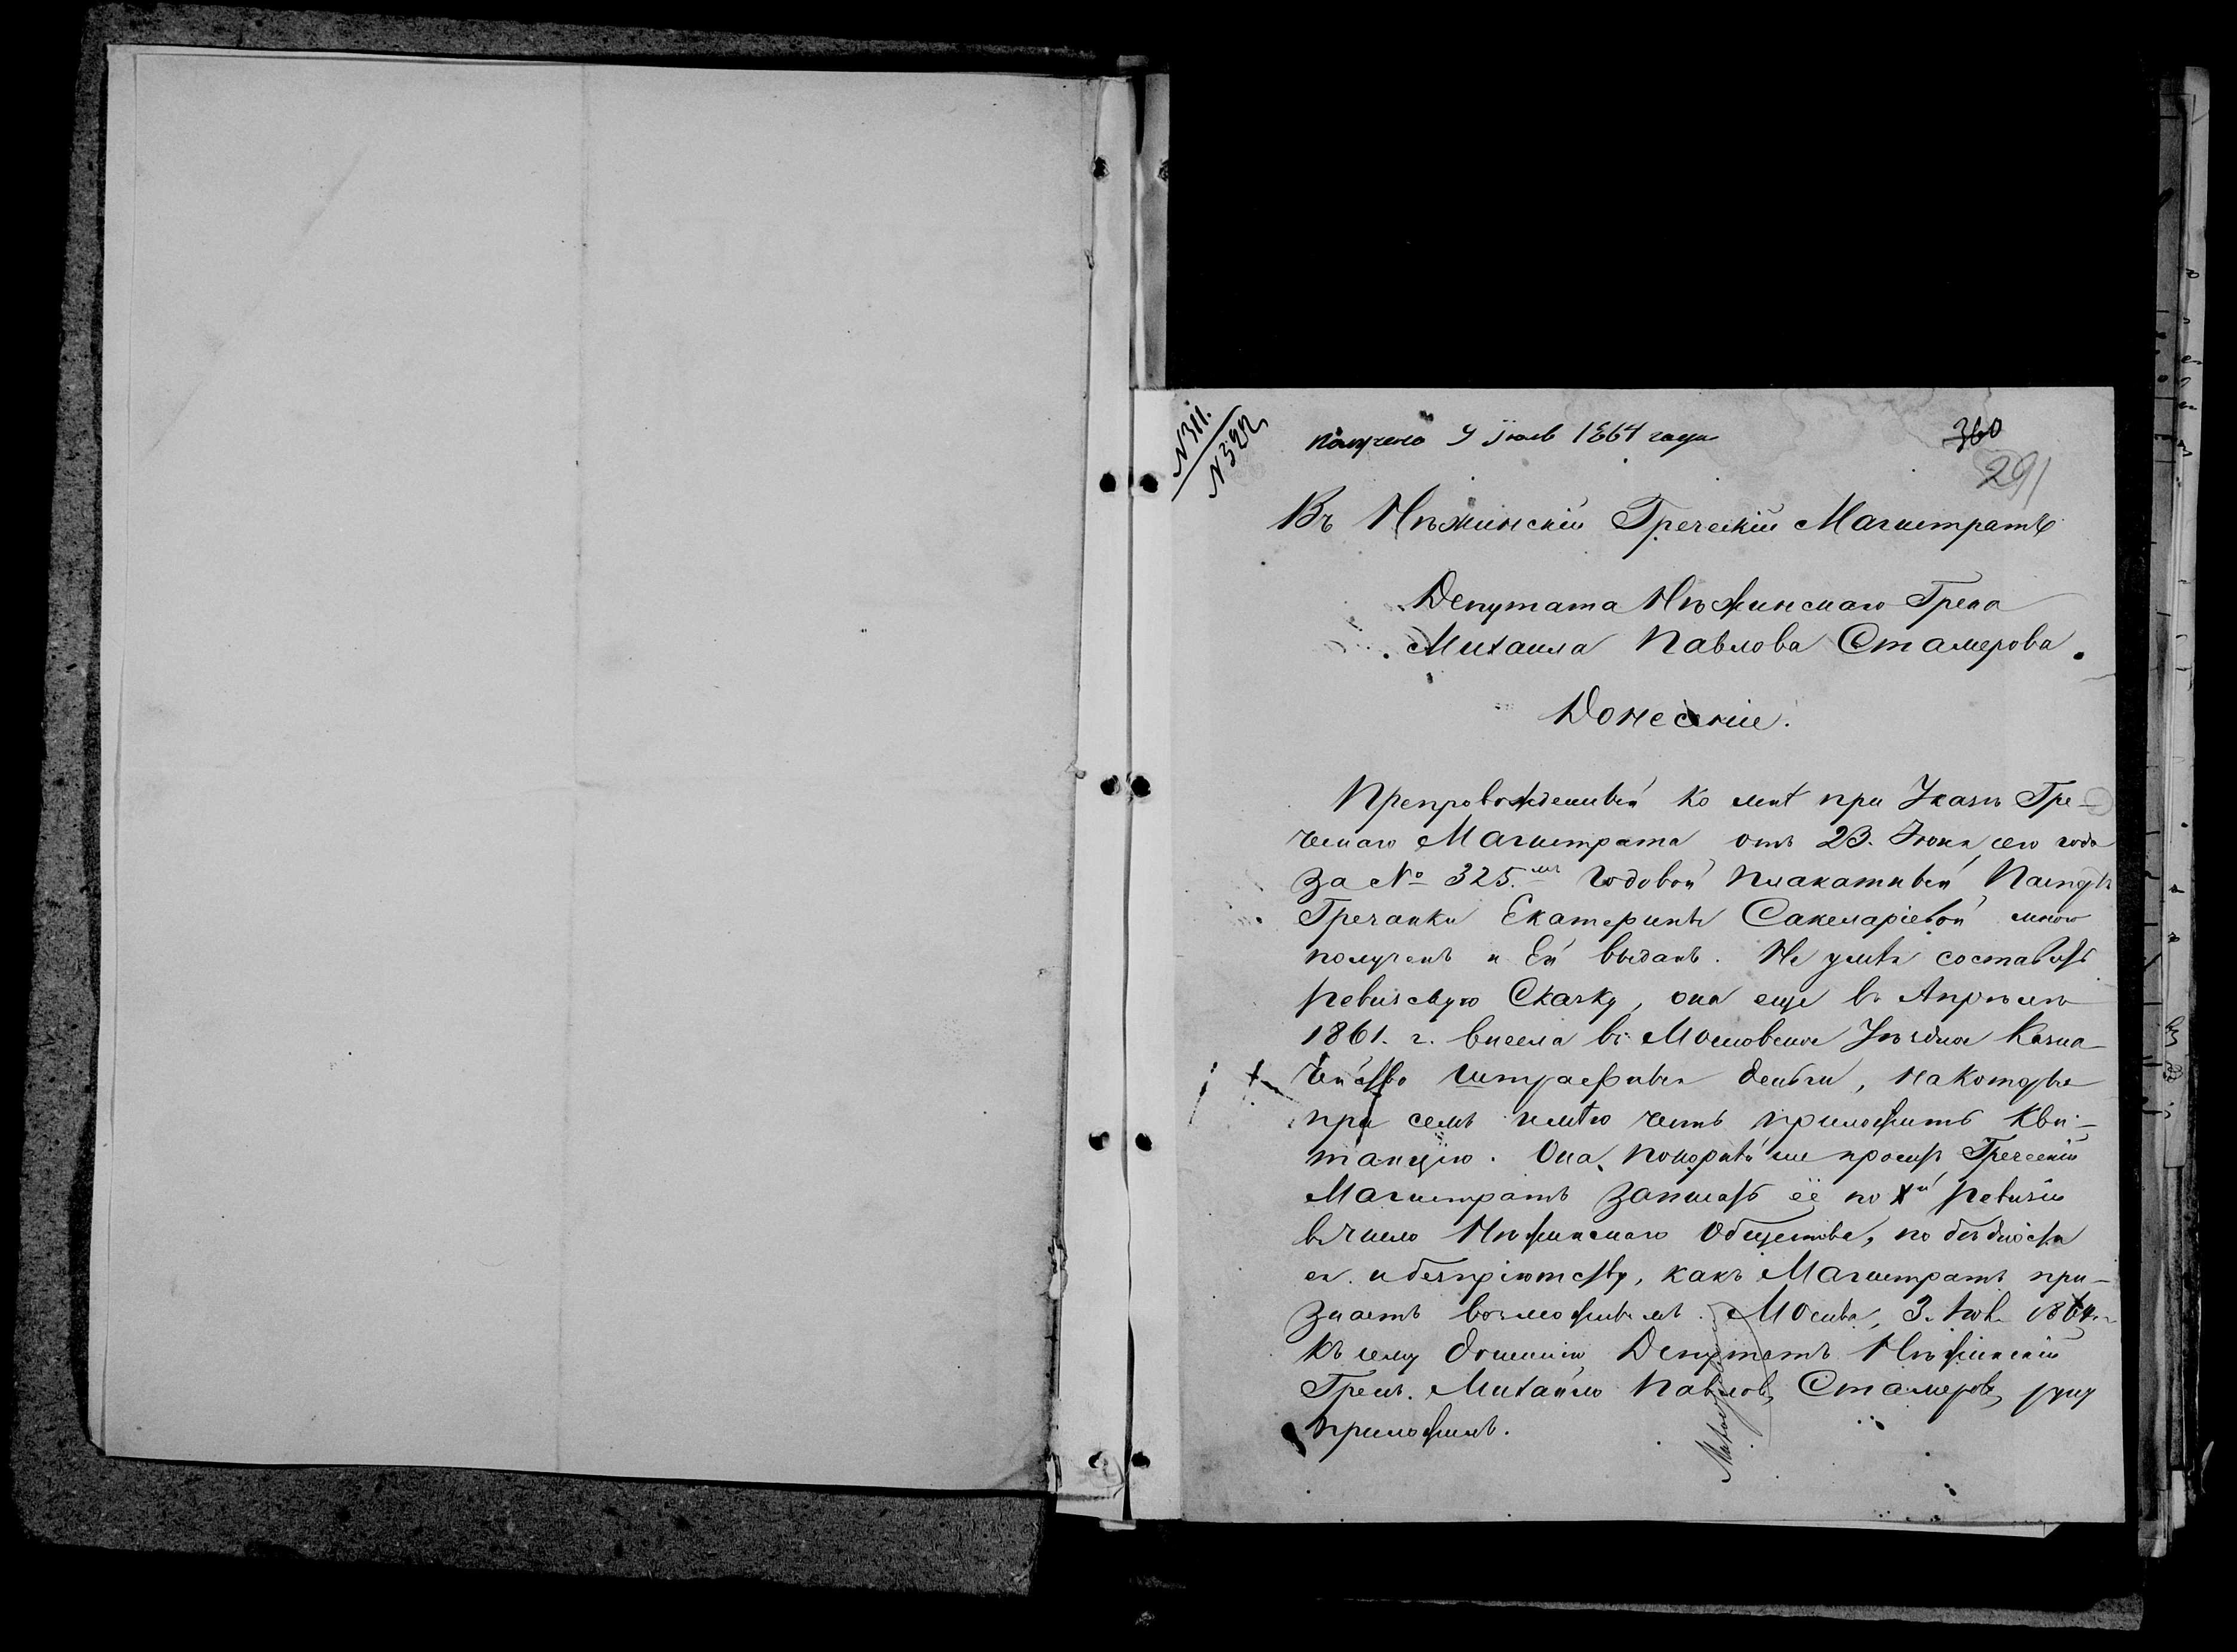 №311.
№322
получено 9 Іюль 1864 года
360
291
Въ Нѣжинскій Греческій Магистратъ
Депутата Нѣжинскаго Грека
Михаила Павлова Стамерова.
Донесеніе.
Препровожденный ко мнѣ при Указѣ Гре-
ческаго Магистрата отъ 23. Іюня сего года
за № 325.мъ Годовой Плакатный Паспортъ
Гречанки Екатерины Сакеларіевой мною
полученъ и Ей выданъ. Не умѣя составить
ревизскую Сказку, она еще въ Апрѣлѣ
1861. г. внесла въ Московское Уѣздное Казна-
чейство штрафныя деньги, на которые
при семъ имѣю честь приложить Кви-
танцію. Она покорнѣйше проситъ Греческій
Магистратъ записать её по Xй ревизіи
въ число Нѣжинскаго Общества, по бѣдности
ея и безпріютству, какъ Магистратъ при-
знаетъ возможнымъ. Москва, 3. Іюль 1864.
Къ сему донесенію Депутатъ Нѣжинскій
Грекъ Михайло Павловъ Стамеровъ руку
приложилъ.